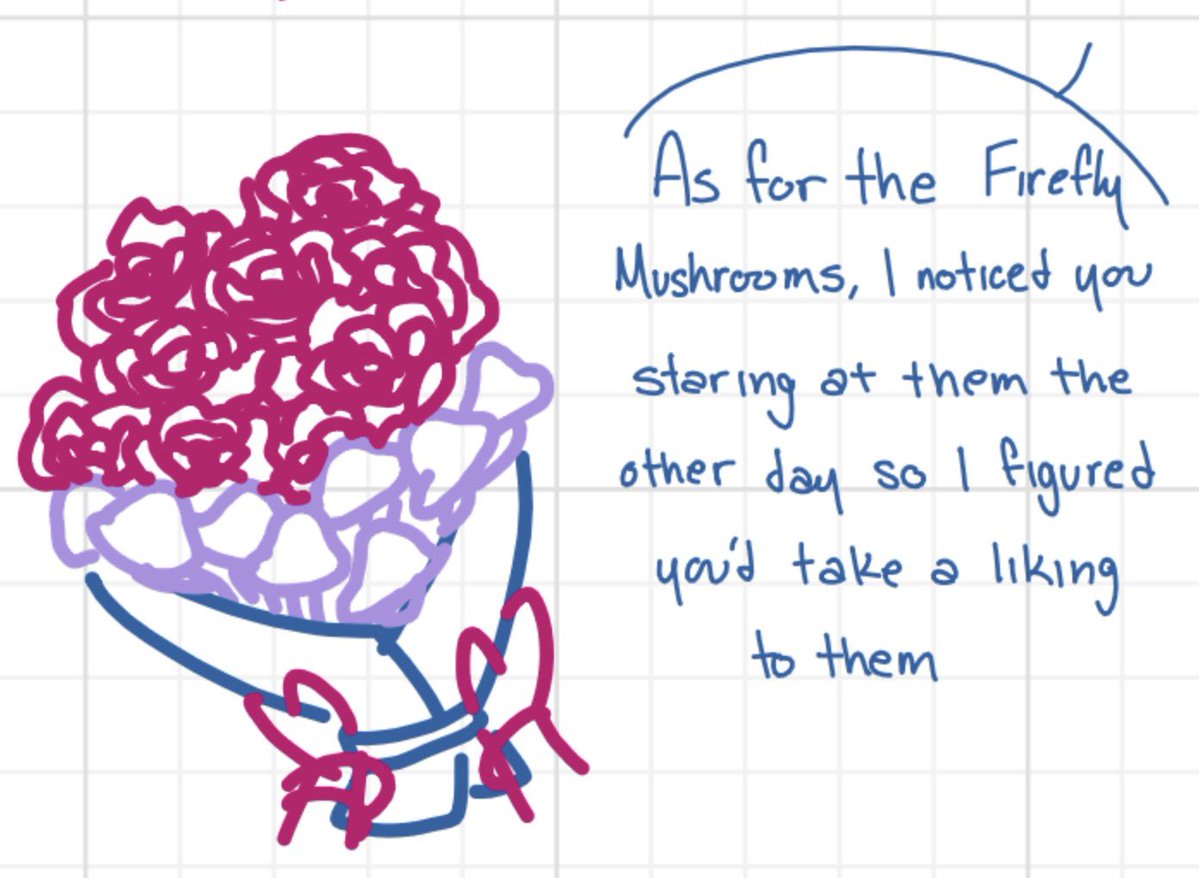 As for the Firefly
Mushrooms, I noticed you
staring at them the
other day so I figured
you'd take a liking
to them